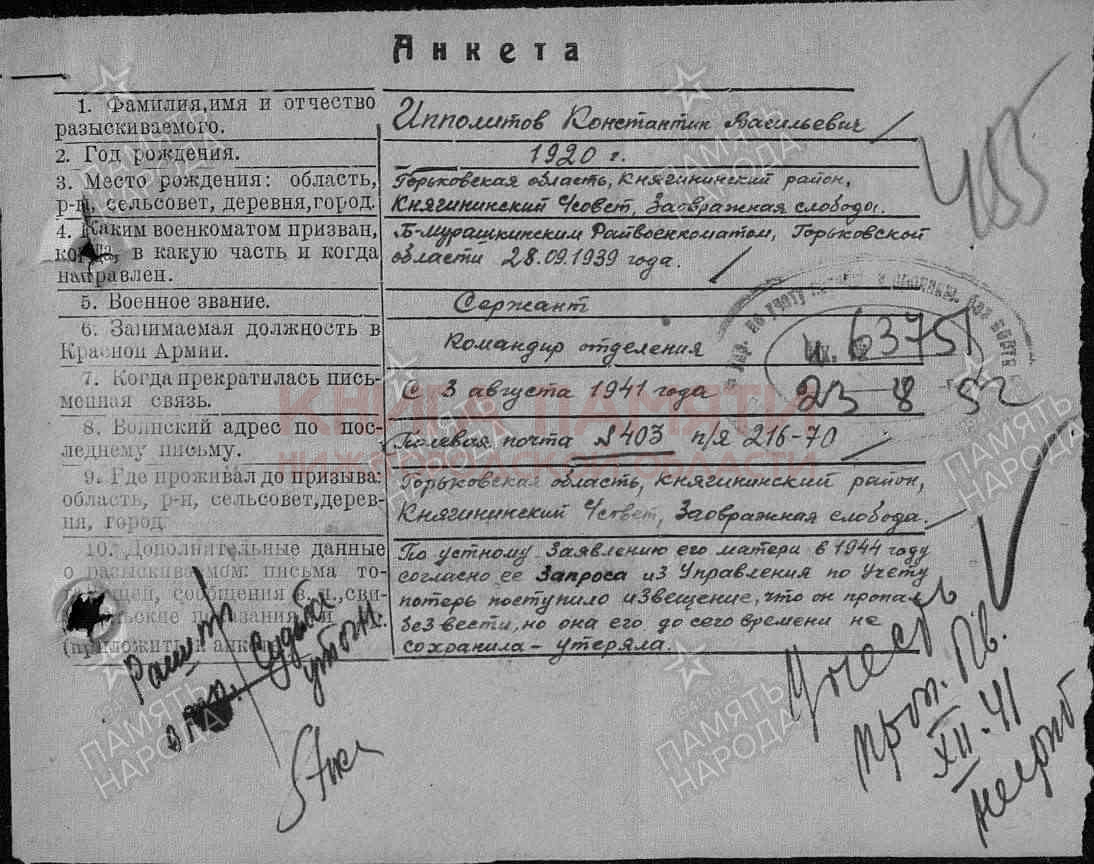 Анкета
1. Фамилия,имя и отчество
разыскиваемого.
Ипполитов Константин Васильевич
2. Год рождения.
1920 г.
3. Место рождения: область,
р-н, сельсовет, деревня,город.
Горьковская область, Княгининский район,
Княгининский с/совет, Заовражная слобода.
4. Каким военкоматом призван,
когда, в какую часть и когда
направлен.
Б-Мурашкинским Райвоенкоматом, Горьковской
области 28.09.1939 года.
5. Военное звание.
Сержант
6. Занимаемая должность в
Красной Армии.
Командир отделения
7. Когда прекратилась пись-
менная связь.
С 3 августа 1941 года
8. Воинский адрес по пос-
леднему письму.
Полевая почта №403 п/я 216-70
9. Где проживал до призыва:
область, р-н, сельсовет,дерев-
ня, город.
Горьковская область, Княгининский район,
Княгининский с/совет, Заовражная слобода.
10. Дополнительные данные
о разыскиваемом: письма то-
сообщения в.ч.,сви-
показания
(приложить к
По устному заявлению его матери в 1944 году
согласно ее Запроса из Управления по Учету
потерь поступило извещение, что он пропал
без вести, но она его до сего времени не
сохранила – утеряла.
455
по учету
вх. 63751
23-8 52
КНИГА ПАМЯТИ
НИЖЕГОРОДСКОЙ ОБЛАСТИ
судьба
Учесть
проп. б/в.
XII-41
ПАМЯТЬ
НАРОДА
ПАМЯТЬ
НАРОДА
ПАМЯТЬ
НАРОДА
ПАМЯТЬ
НАРОДА
ПАМЯТЬ
НАРОДА
ПАМЯТЬ
НАРОДА